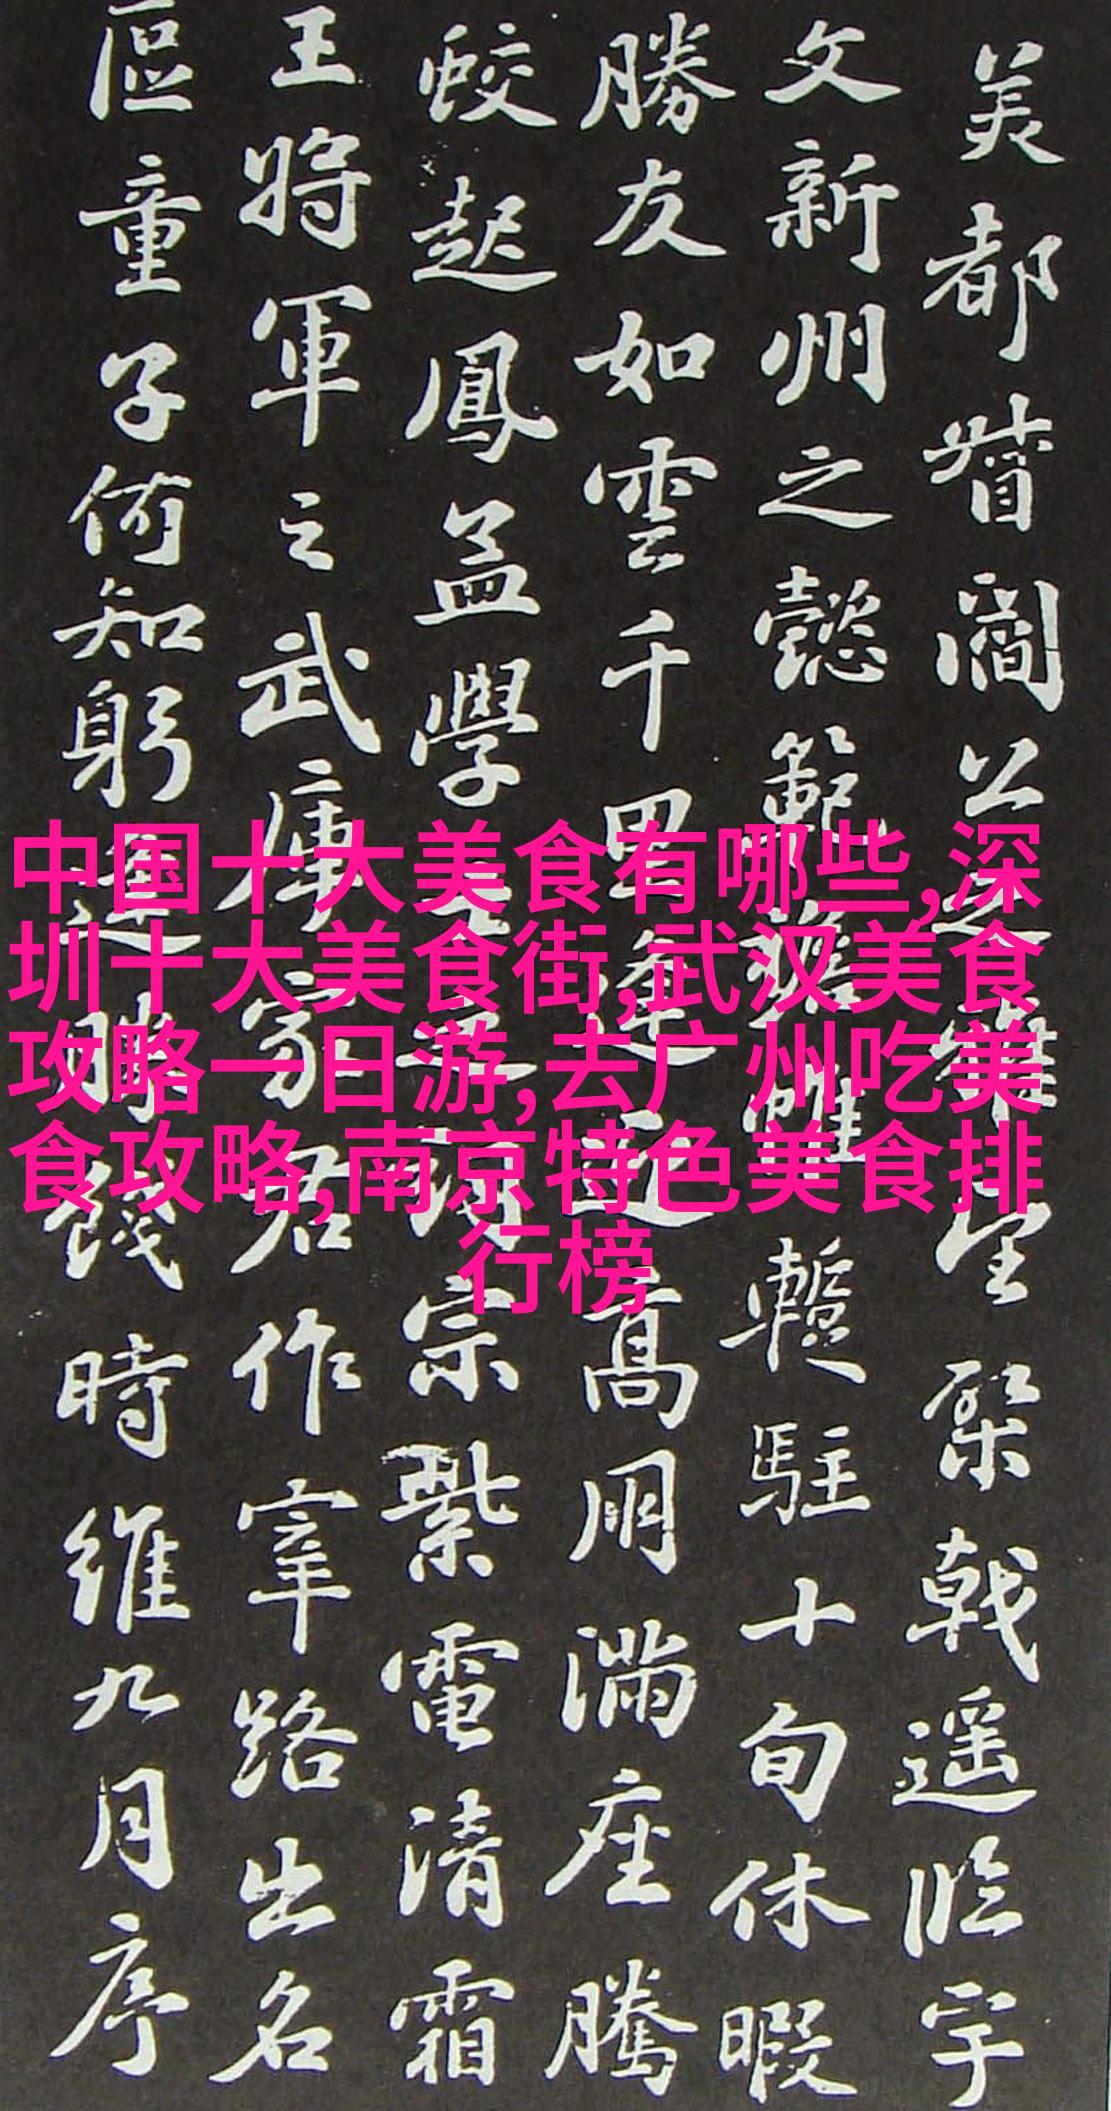 美都督閻公之雅望棨戟遥臨宇
文新州之懿範襜帷暫駐十旬休暇
勝友如雲千里逢迎高朋滿座騰
蛟起鳳孟學士之詞宗紫電清霜
王將軍之武庫家君作宰路出名
區童子何知躬逢勝餞時維九月序
中国十大美食有哪些,深
圳十大美食街,武汉美食
攻略一日游,去广州吃美
食攻略,南京特色美食排
行榜